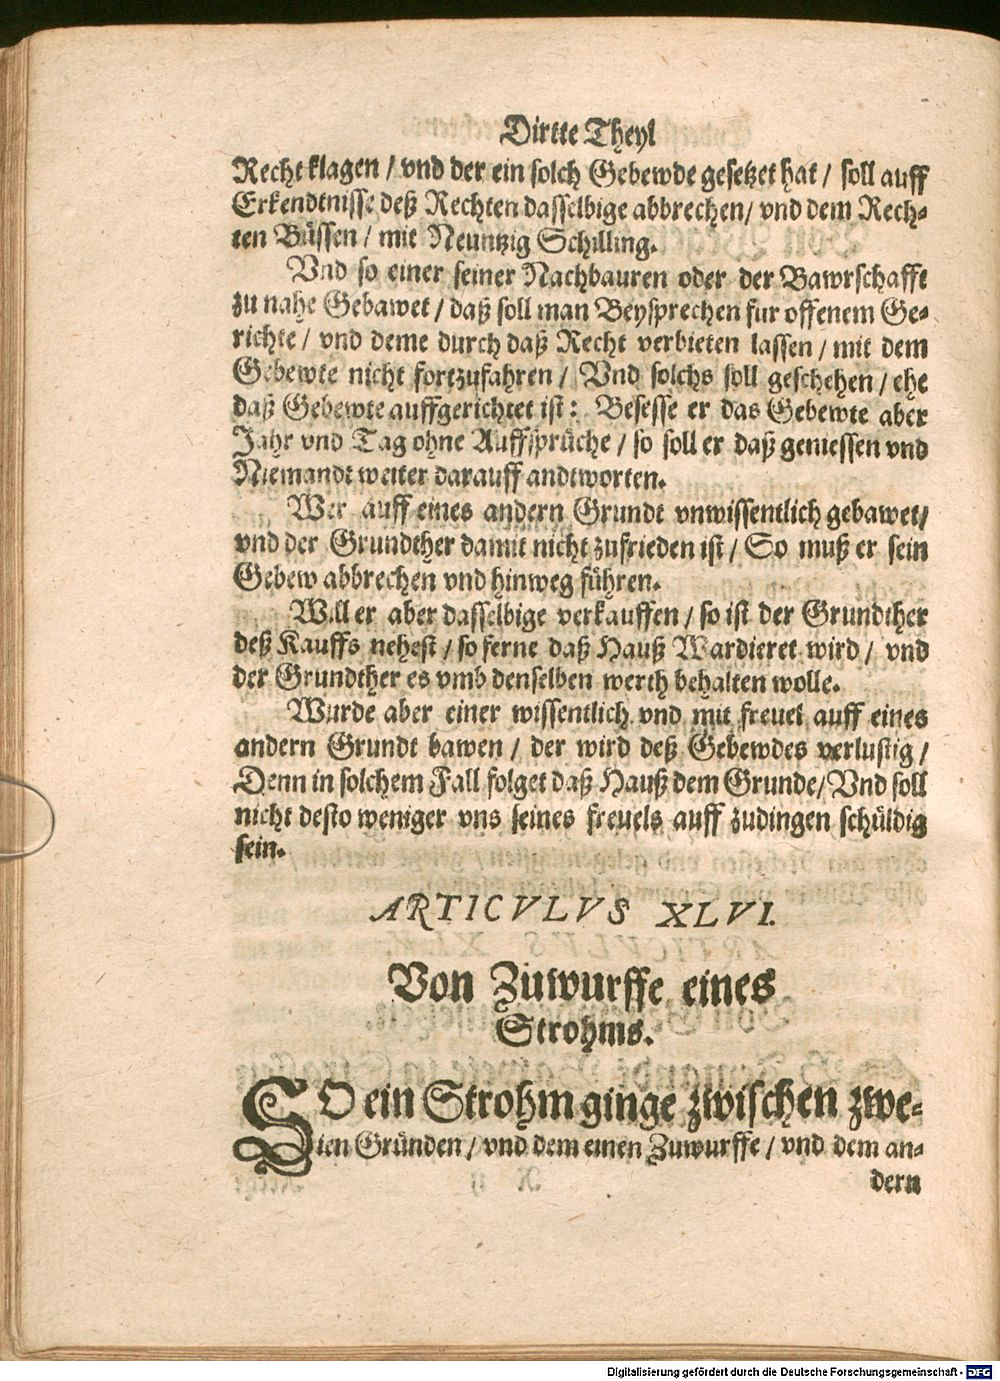 Dirtte Theyl
Recht klagen / vnd der ein solch Gebewde gesetzet hat / soll auff
Erkendtnisse deß Rechten dasselbige abbrechen / vnd dem Rech-
ten Büssen / mit Neuntzig Schilling.
Vnd so einer seiner Nachbauren oder der Bawrschafft
zu nahe Gebawet / daß soll man Beysprechen fur offenem Ge-
richte / vnd deme durch daß Recht verbieten lassen / mit dem
Gebewte nicht fortzufahren / Vnd solchs soll geschehen / ehe
daß Gebewte auffgerichtet ist: Besesse er das Gebewte aber
Jahr vnd Tag ohne Auffsprüche / so soll er daß geniessen vnd
Niemandt weiter darauff andtworten.
Wer auff eines andern Grundt vnwissentlich gebawet /
vnd der Grundther damit nicht zufrieden ist / So muß er sein
Gebew abbrechen vnd hinweg führen.
Will er aber dasselbige verkauffen / so ist der Grundther
deß Kauffs nehest / so ferne daß Hauß Wardieret wird / vnd
der Grundther es vmb denselben werth behalten wolle.
Wurde aber einer wissentlich vnd mit frevel auff eines
andern Grundt bawen / der wird deß Gebewdes verlustig /
Denn in solchem Fall folget daß Hauß dem Grunde / Vnd soll
nicht desto weniger vns seines freuels auff zudingen schüldig
sein.
ARTICVLVS XLVI.
Von Zuwurffe eines
Strohms.
SO ein Strohm ginge zwischen zwe-
ien Gründen / vnd dem einen Zuwurffe / vnd dem an-
dern
Digitalisierung gefördert durch die Deutsche Forschungsgemeinschaft - DFG